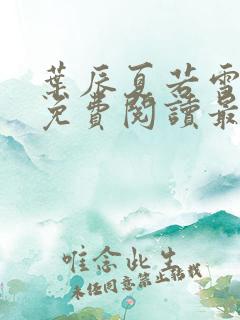 葉辰夏若雪
免費閱讀最
唯念此生
未经同意禁止转载